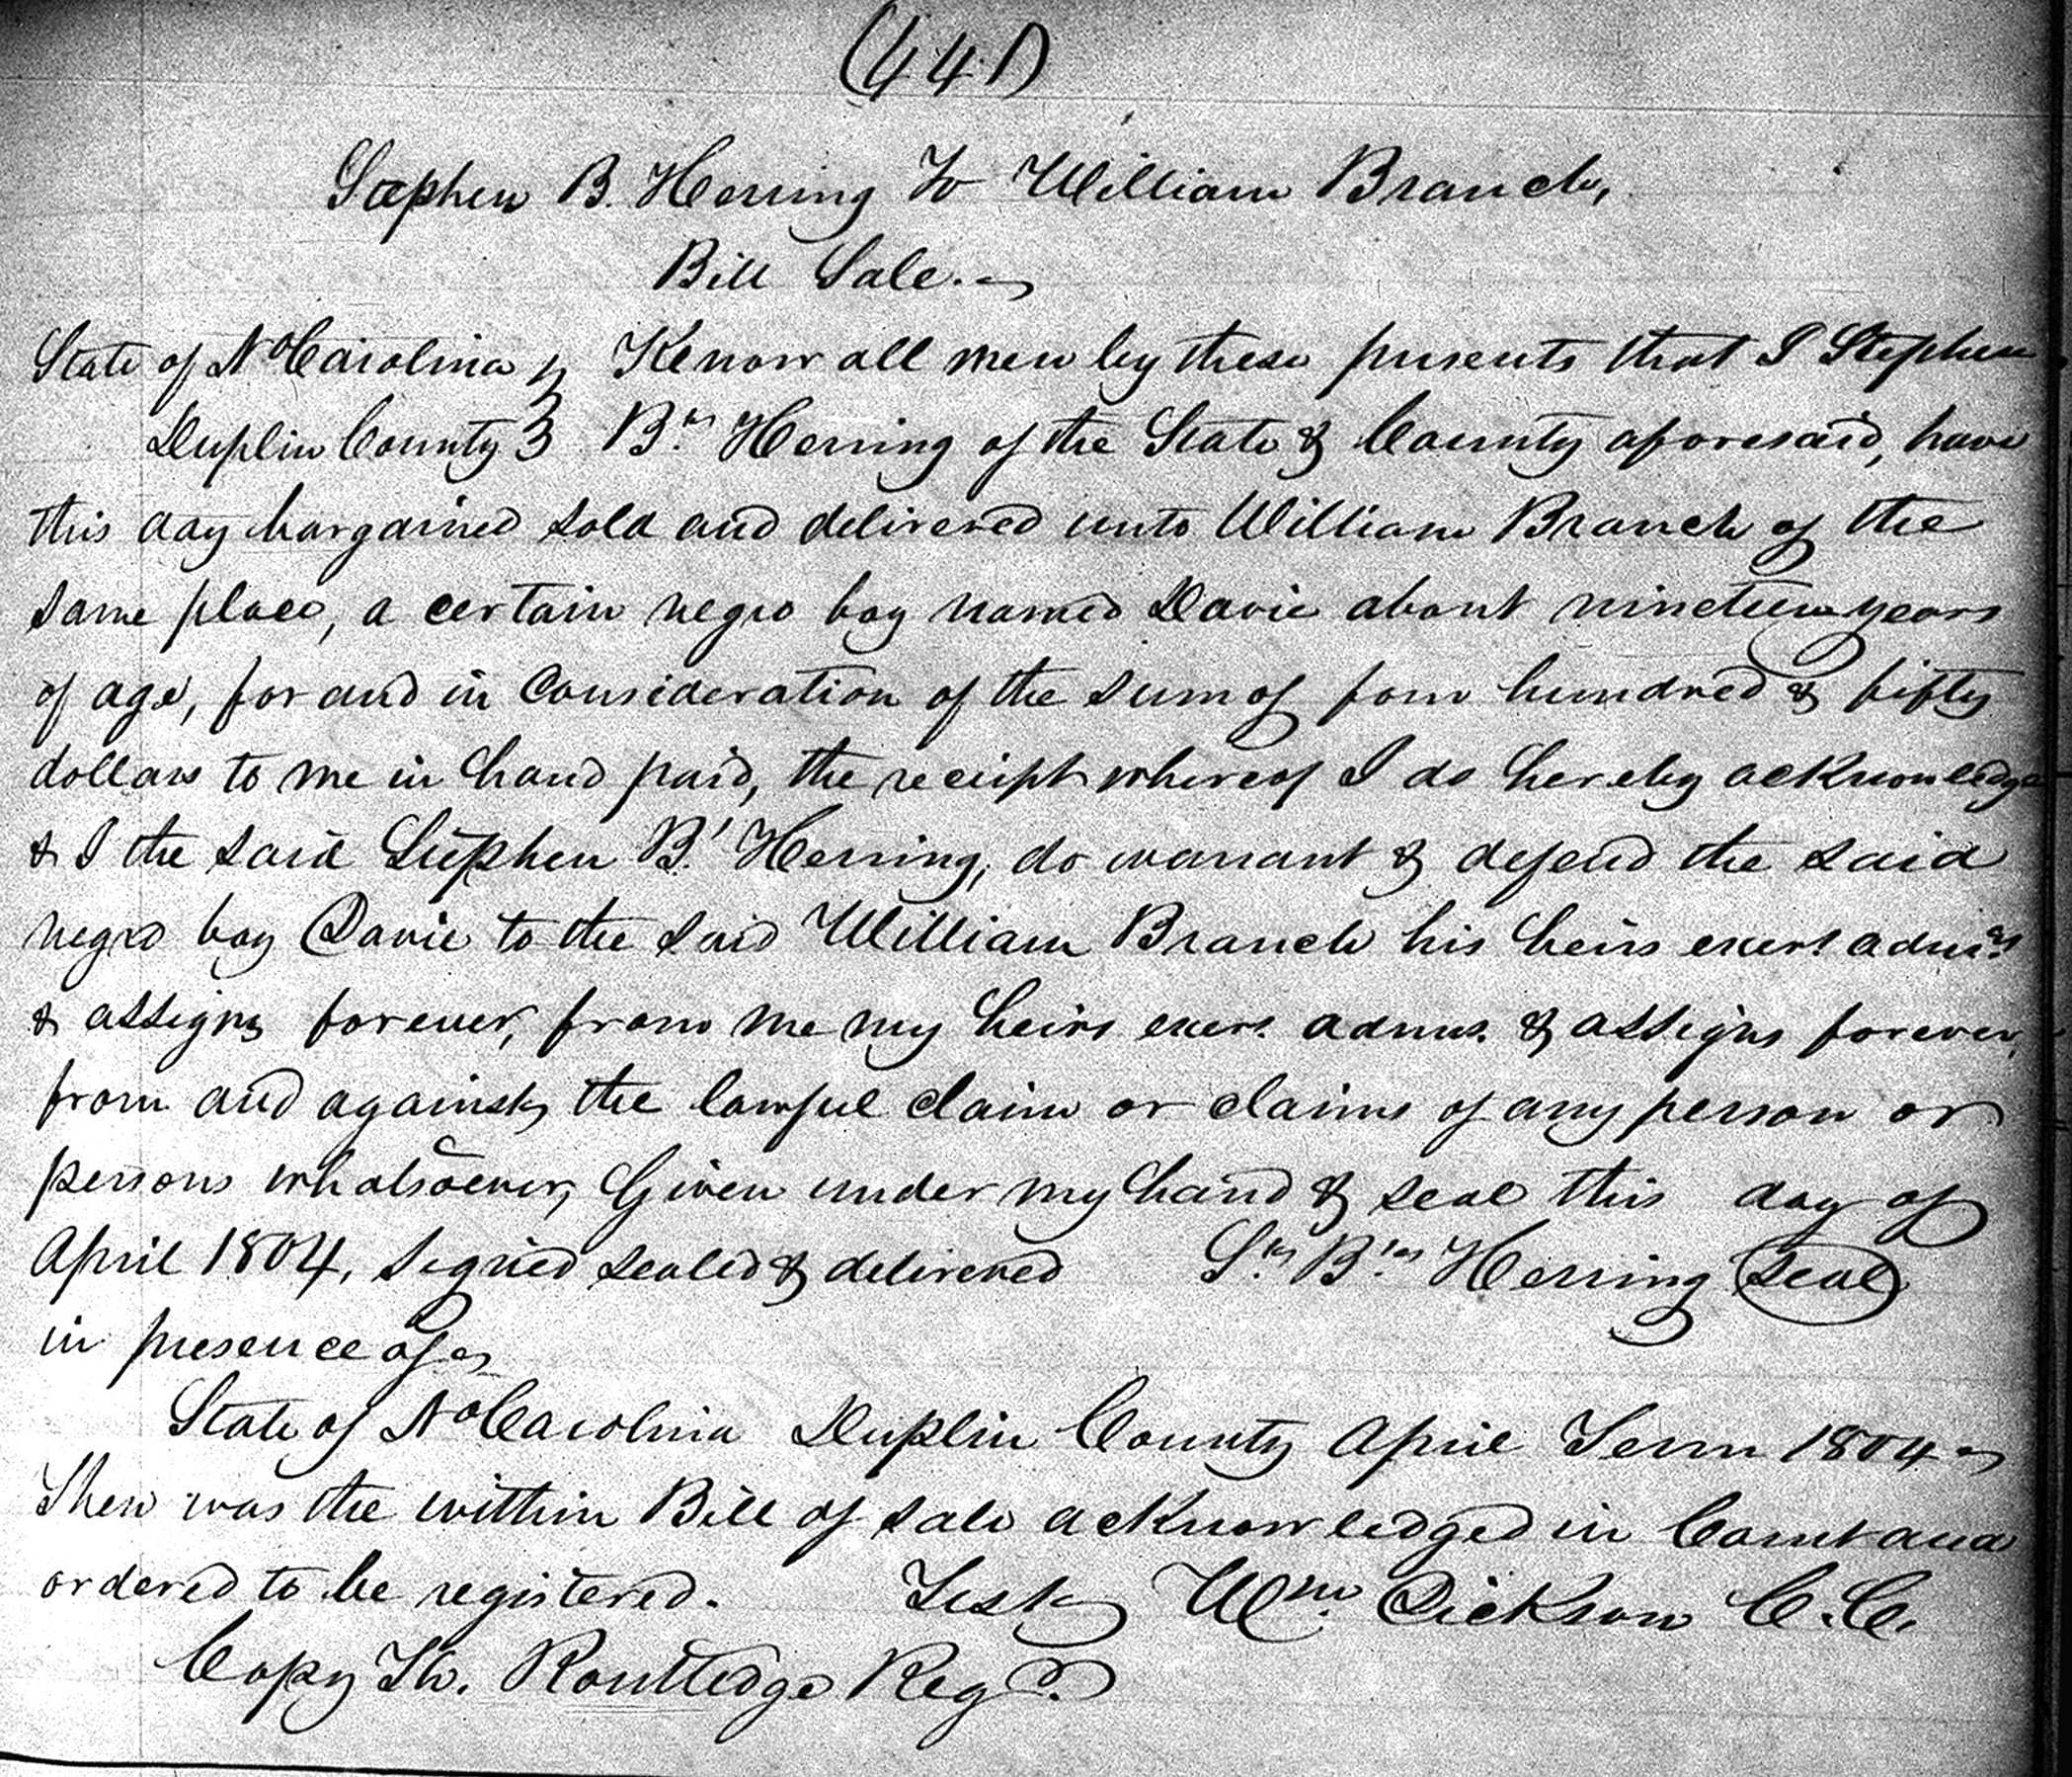 (441)
Stephen B. Herring To William Branch,
Bill Sale.
State of No Carolina } Know all men by these presents that I Stephen
Duplin County } Bn Herring of the State & County aforesaid, have
this day bargained sold and delivered unto William Branch of the
same place, a certain negro boy named Davie about nineteen years
of age, for and in Consideration of the sum of four hundred & fifty
dollars to me in hand paid, the receipt whereof I do hereby acknowledge
& I the said Stephen B. Herring, do warrant & defend the said
negro boy Davie to the said William Branch his heirs exers. admrs.
& assigns forever, from me my heirs exers. admrs. & assigns forever,
from and against, the lawful claim or claims of any person or
persons whatsoever, Given under my hand & seal this day of
April 1804. Signed sealed & delivered Stn. Bn. Herring Seal
in presence of
State of No Carolina Duplin County April Term 1804
Then was the within Bill of Sale acknowledged in Court and
ordered to be registered. Test Wm. Dickson C.C.
Copy Th. Routledge Regr.